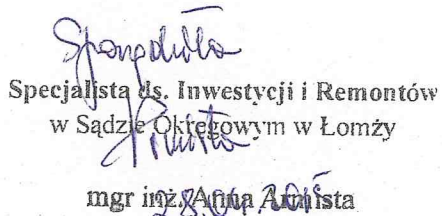 Sporządziła
Specjalista ds. Inwestycji i Remontów
w Sądzie Okręgowym w Łomży
mgr inż. Anna